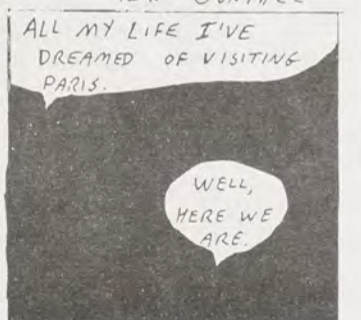 ALL MY LIFE I'VE
DREAMED OF VISITING
PARIS.
WELL,
HERE WE
ARE.